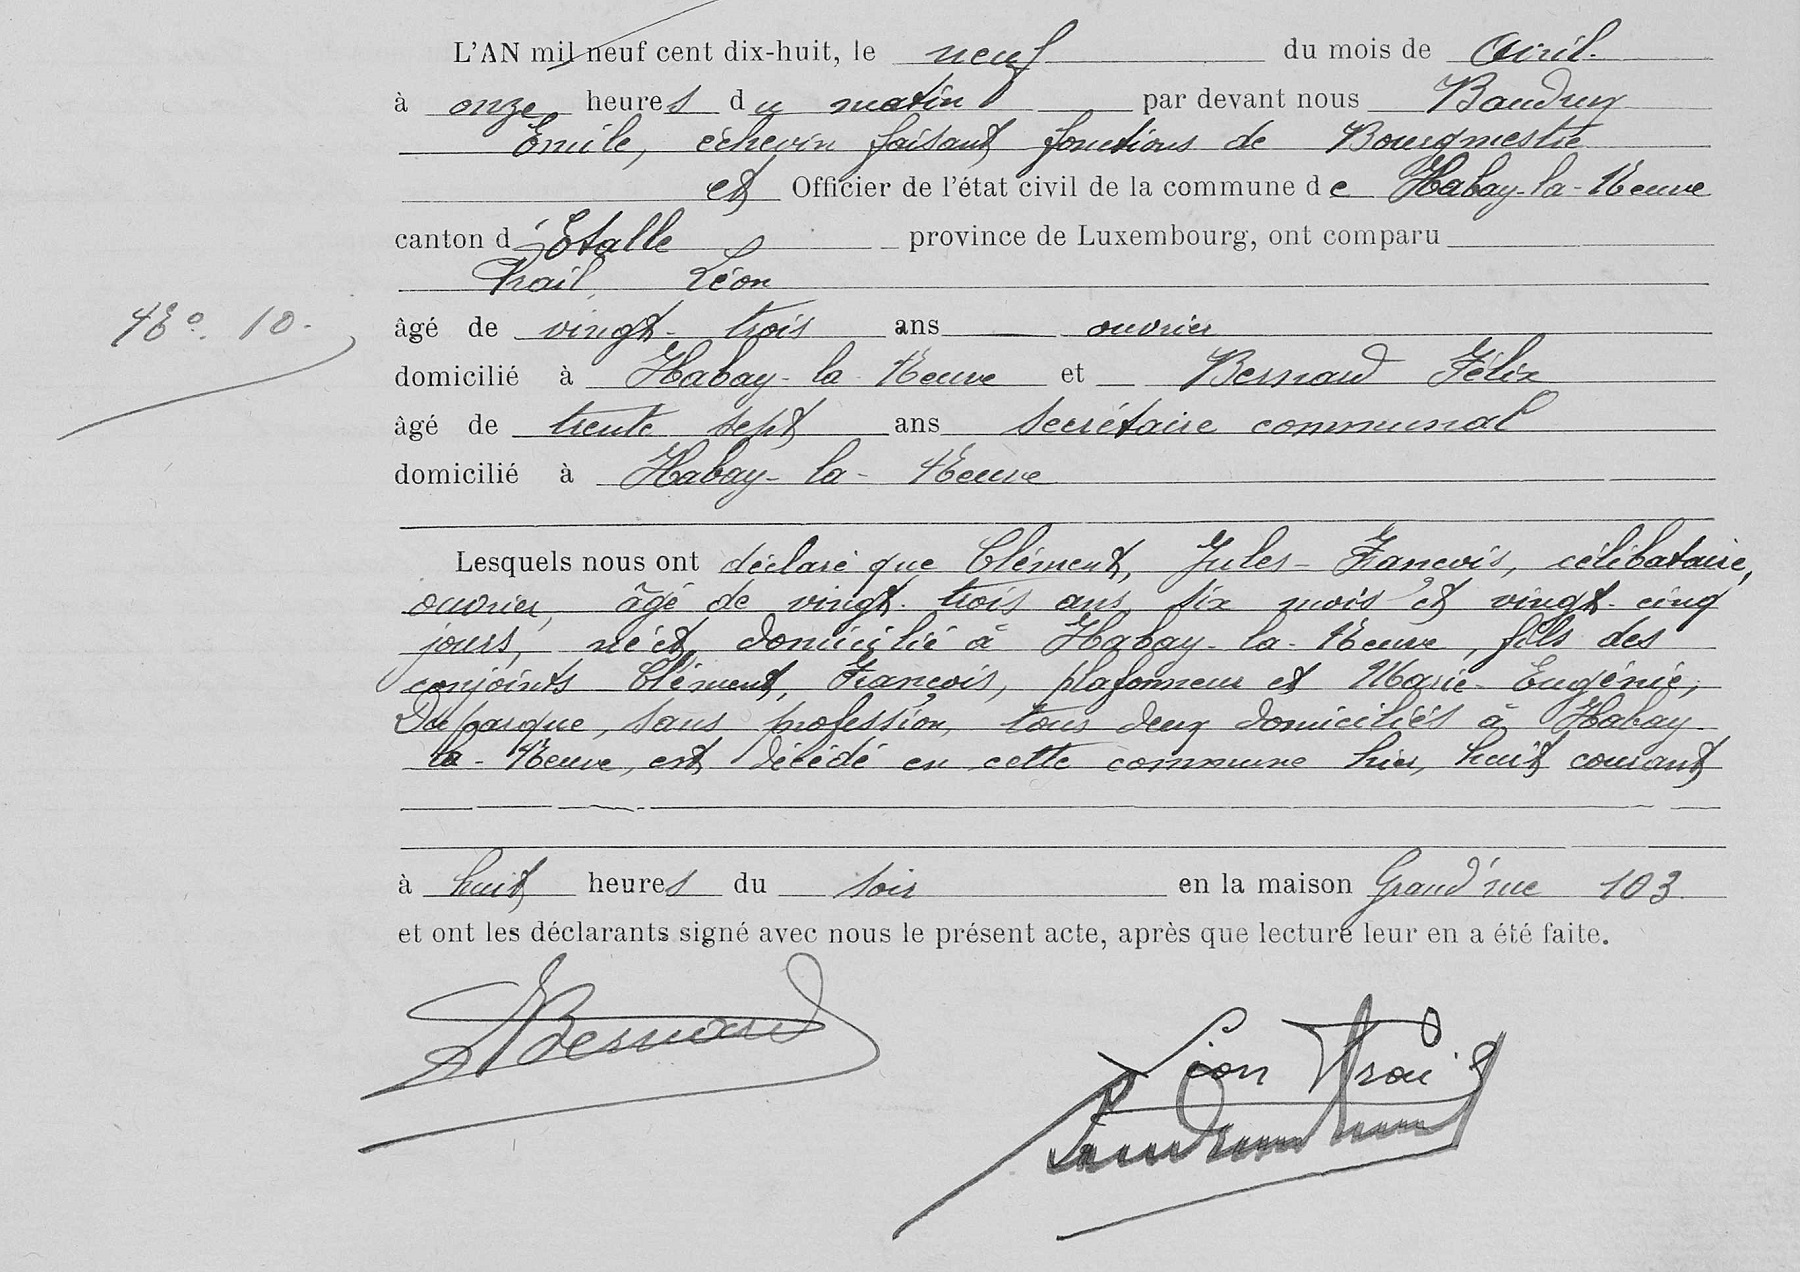 L'AN mil neuf cent dix-huit, le neuf du mois de Avril.
à onze heures du matin par devant nous Baudruy
Emile, échevin faisant fonctions de Bourgmestre
et Officier de l'état civil de la commune de Habay-la-Neuve
canton d'Etalle province de Luxembourg, ont comparu
Léon
N° 10.
âgé de vingt-trois ans ouvrier
domicilié à Habay-la-Neuve et Bernard Félix
âgé de trente sept ans secrétaire communal
domicilié à Habay-la-Neuve
Lesquels nous ont déclaré que Clément, Jules-François, célibataire,
ouvrier, âgé de vingt-trois ans six mois et vingt-cinq
jours, né et domicilié à Habay-la-Neuve, fils des
conjoints Clément, François, plafonneur et Marie-Eugénie,
Dufasque, sans profession, tous deux domiciliés à Habay-
la-Neuve, est décédé en cette commune hier, huit courant
à huit heures du soir en la maison Grand'rue 103
et ont les déclarants signé avec nous le présent acte, après que lecture leur en a été faite.
FBernard
Léon